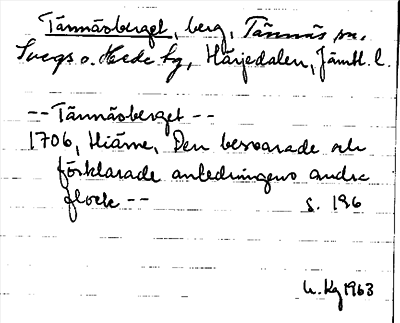 Tännäsberget, berg, Tännäs sn.
Svegs o. Hede tg, Härjedalen, Jämtl. l.
-- Tännäsberget --
1706, Hiärne, Den besvarade och
förklarade anledningens andre
flock -- s. 196
1963